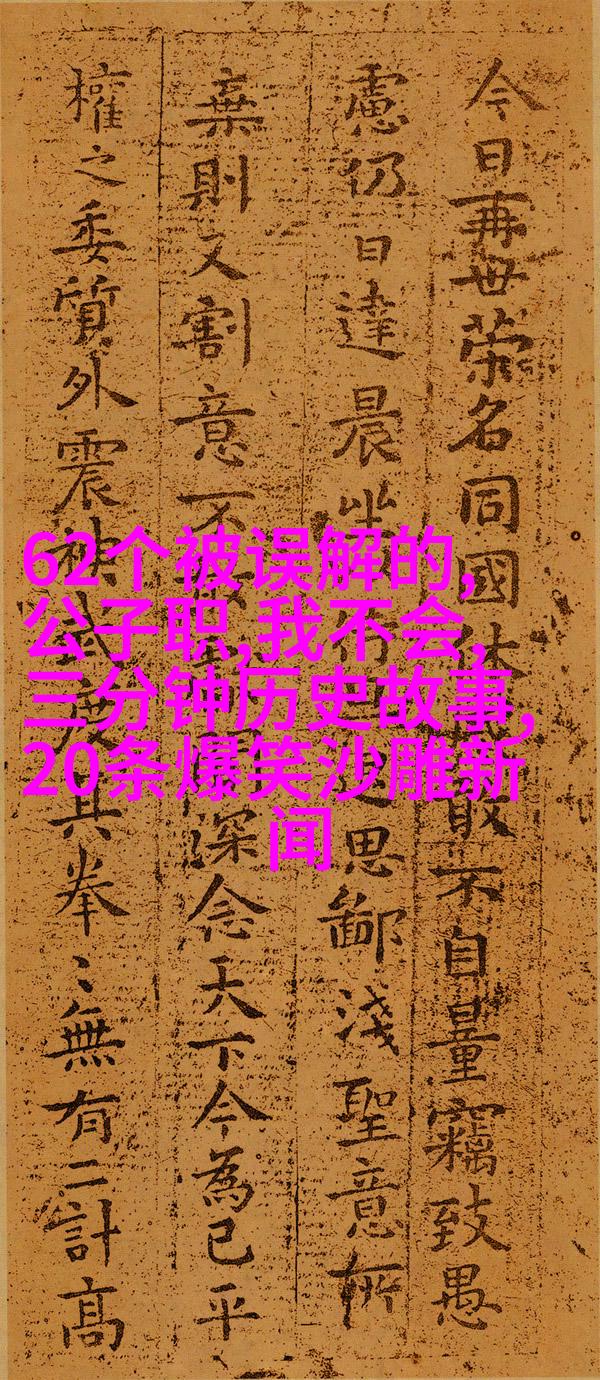 今日再世荣名同國休敢不自量竊致愚
慮仍日達晨坐思鄙淺聖意所
棄則又割意不敢深念天下今為已平
權之委質外震神武度其拳〻無有二計高
62个被误解的,
公子职,我不会,
三分钟历史故事,
20条爆笑沙雕新
闻